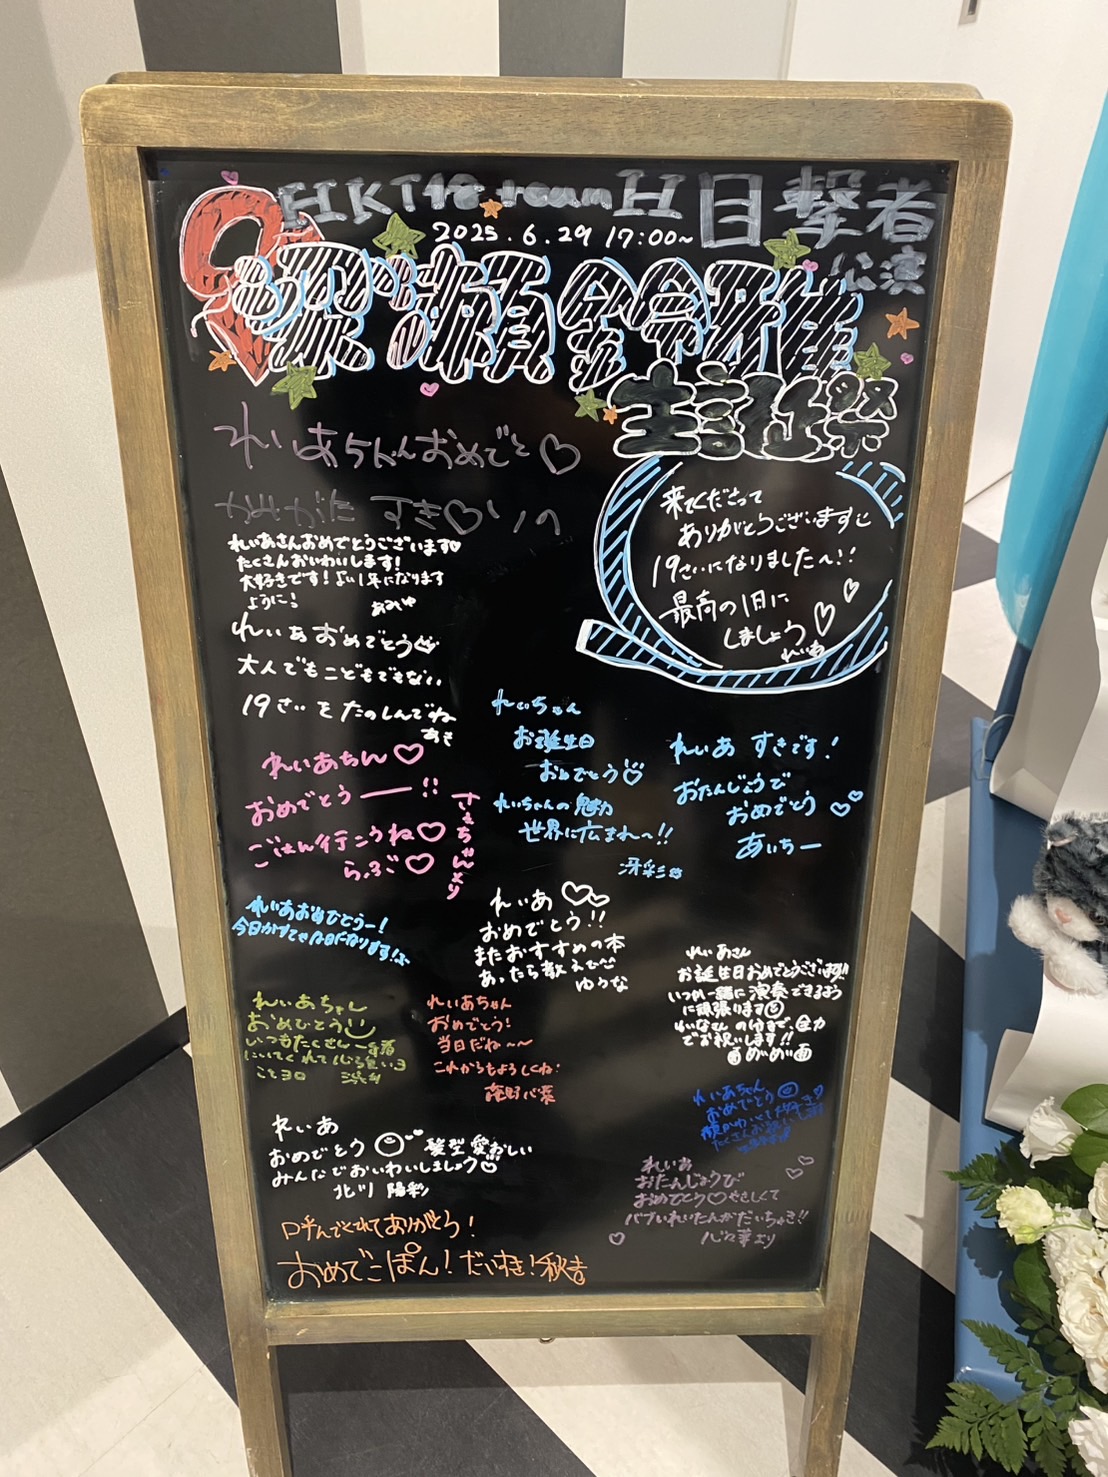 HKT48 team H 目撃者
公演
2025.6.29 17:00~
梁瀬鈴雅
生誕祭
来てくださって
ありがとうございます
19さいになりました〜!!
最高の1日に
しましょう♡
れいあ
れいあちゃんおめでと♡
かみがた すき♡ りの
れいあさんおめでとうございます♡
たくさんおいわいします!
大好きです! いい1年になります
ように!
れいあおめでとう
大人でもこどもでもない
19さいをたのしんでね
あき
れいあちん♡
おめでとうー!!
ごはん行こうね♡
らぶ♡
さえちゃんより
れいちゃん
お誕生日
おめでとう
れいちゃんの魅力
世界に広まれ〜!!
冴彩
れいあ すきです!
おたんじょうび
おめでとう
あいちー
れいあおめでとうー!
れいあ♡♡
おめでとう!!
またおすすめの本
あったら教えて
ゆうな
れいあさん
お誕生日おめでとうございます!!
いつか一緒に演奏できるよう
に頑張ります
全力
でお祝いします!!
めいめい
れいあちゃん
おめでとう
いつもたくさん
れいあちゃん
おめでとう!
当日だね〜〜
これからもよろしくね!
れいあちゃん
おめでとう
れいあ
おめでとう 髪型 愛おしい
みんなでおいわいしましょう
北川 陽彩
れいあ
おたんじょうび
おめでとう♡やさしくて
バブいれいたんがだいちゅき!!
より
呼んでくれてありがとう!
おめでこぽん! だいすき! 秋吉